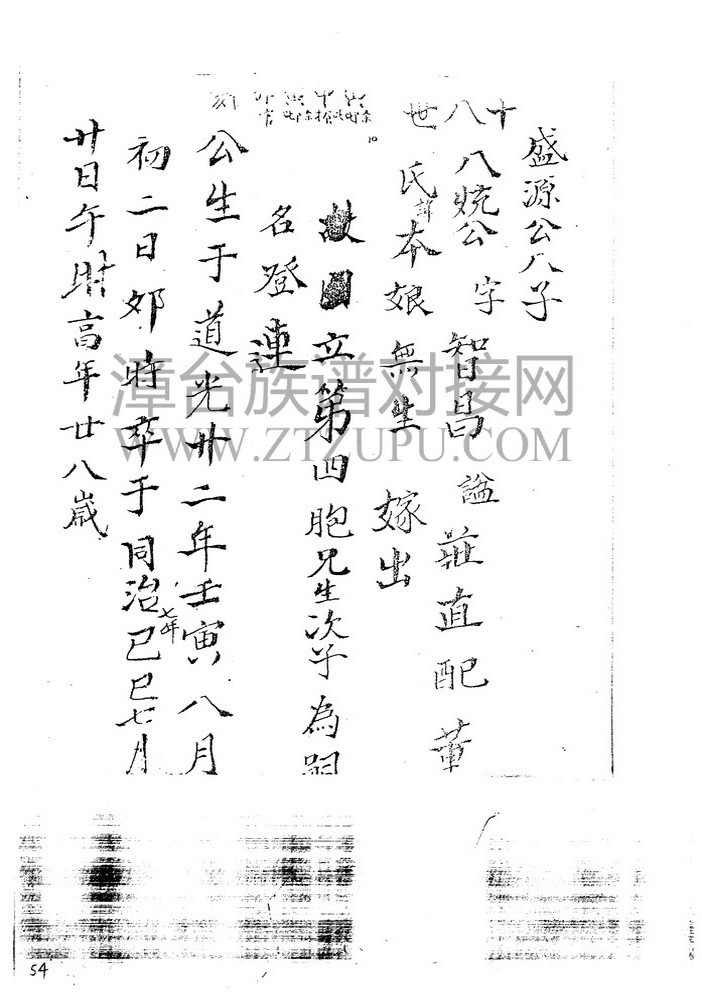 十八世
盛源公八子
八炕公字智昌謚莊直配董
氏本娘無生嫁出
立第四胞兄生次子為嗣
名登連
公生于道光廿二年壬寅八月
初二日卯時卒于同治七年己巳七月
廿日午時高年廿八歲
漳台族谱对接网
WWW.ZTZUPU.COM
54